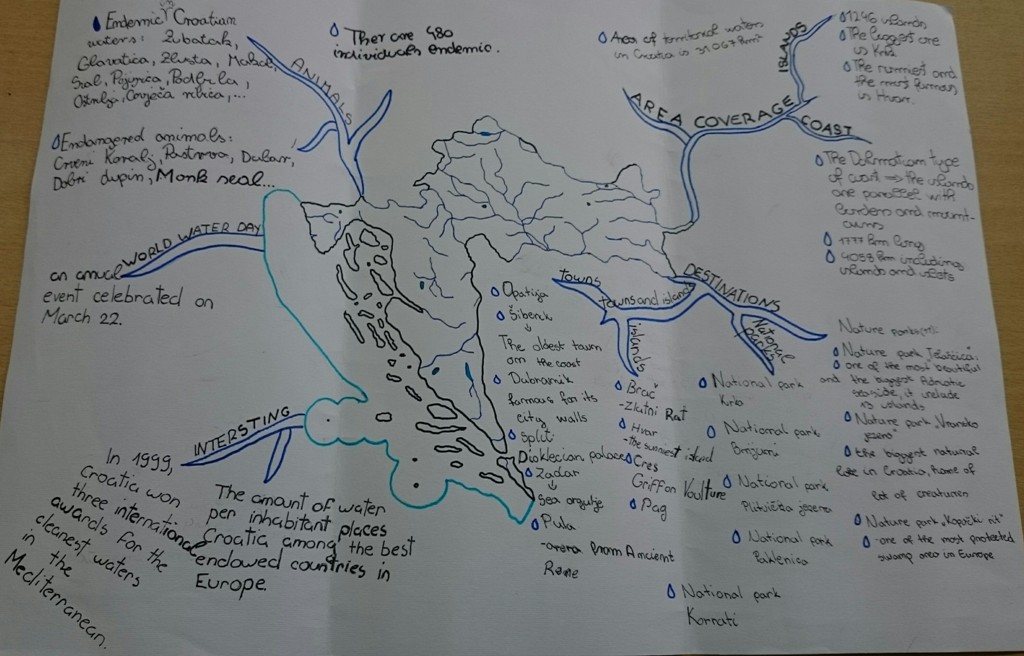 Endemic in Croatian
waters: Zubatak,
Glavatica,
Ostrulj, Crnječa
There are 480
individuals endemic.
Endangered animals:
Crveni Koralj, Pastrva,
Dobri dupin, Monk seal...
ANIMALS
WORLD WATER DAY
an event celebrated on
March 22.
INTERSTING
In 1999,
Croatia won
three international
awards for the
cleanest waters
in the
Mediterranean.
The amount of water
per inhabitant places
Croatia among the best
endowed countries in
Europe.
Area of territorial waters
in Croatia is 31.067 km²
AREA COVERAGE
ISLANDS
1246 islands
The biggest one
is Krk
The sunniest and
the most famous
is Hvar.
COAST
The Dalmatian type
of coast → the islands
are parallel with
1777 km long
4058 km including
islands and islets
DESTINATIONS
towns
towns and islands
islands
National parks
Opatija
Šibenik
↓
The oldest town
on the coast
Dubrovnik
famous for its
city walls
Split
Dioklecian palace
Zadar
↓
Sea orgulje
Pula
-arena from Ancient
Rome
Brač
-Zlatni Rat
Hvar
-the sunniest island
Cres
Griffon Voulture
Pag
National park
Krka
National park
Brijuni
National park
Plitvička jezera
National park
Paklenica
National park
Kornati
Nature park Telašćica:
one of the most beautiful
and the biggest Adriatic
seaside, it include
13 islands
Nature park „Vransko
jezero"
the biggest natural
lake in Croatia, home of
lot of creatures
Nature park „Kopački rit"
-one of the most protected
swamp area in Europe